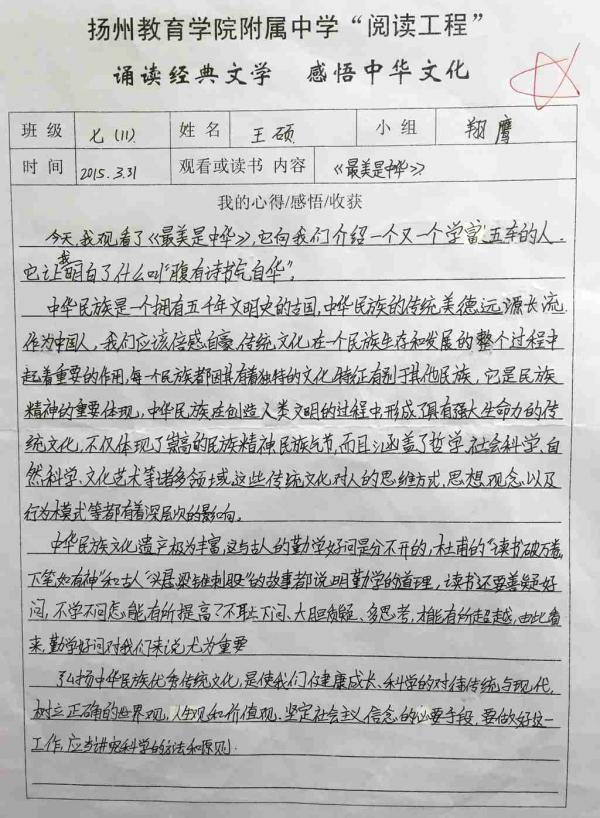 扬州教育学院附属中学“阅读工程”
诵读经典文学 感悟中华文化
班级 七(11) 姓名 王硕 小组 翔鹰
时间 2015.3.31 观看或读书 内容 《最美是中华》
我的心得/感悟/收获
今天,我观看了《最美是中华》,它向我们介绍一个又一个学富五车的人.
它让我明白了什么叫“腹有诗书气自华”.
中华民族是一个拥有五千年文明史的古国,中华民族的传统美德远源长流.
作为中国人,我们应该倍感自豪.传统文化在一个民族生存和发展的整个过程中
起着重要的作用,每一个民族都因具有着独特的文化特征有别于其他民族,它是民族
精神的重要体现,中华民族在创造人类文明的过程中形成了具有强大生命力的传
统文化,不仅体现了崇高的民族精神、民族气节,而且涵盖了哲学、社会科学、自
然科学、文化艺术等诸多领域,这些传统文化对人的思维方式,思想观念以及
行为模式等都有着深层次的影响.
中华民族文化遗产极为丰富,这与古人的勤学好问是分不开的,杜甫的“读书破万卷,
下笔如有神”和古人“头悬梁锥刺股”的故事都说明勤学的道理,读书还要善疑好
问,不学不问怎能有所提高?不耻下问、大胆质疑、多思考,才能有所超越,由此看
来,勤学好问对我们来说尤为重要
弘扬中华民族优秀传统文化,是使我们健康成长、科学的对待传统与现代,
树立正确的世界观,人生观和价值观.坚定社会主义信念的必要手段,要做好这一
工作,应当讲究科学的方法和原则.